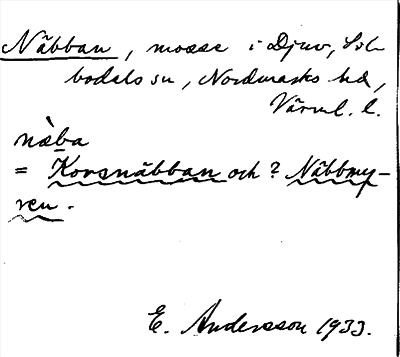 Näbban, mosse i Djuv, Sil-
bodals sn, Nordmarks hd,
Värml. l.
nä̀ba
= Korsnäbban och ? Näbbmy-
ren.
E. Andersson 1933.